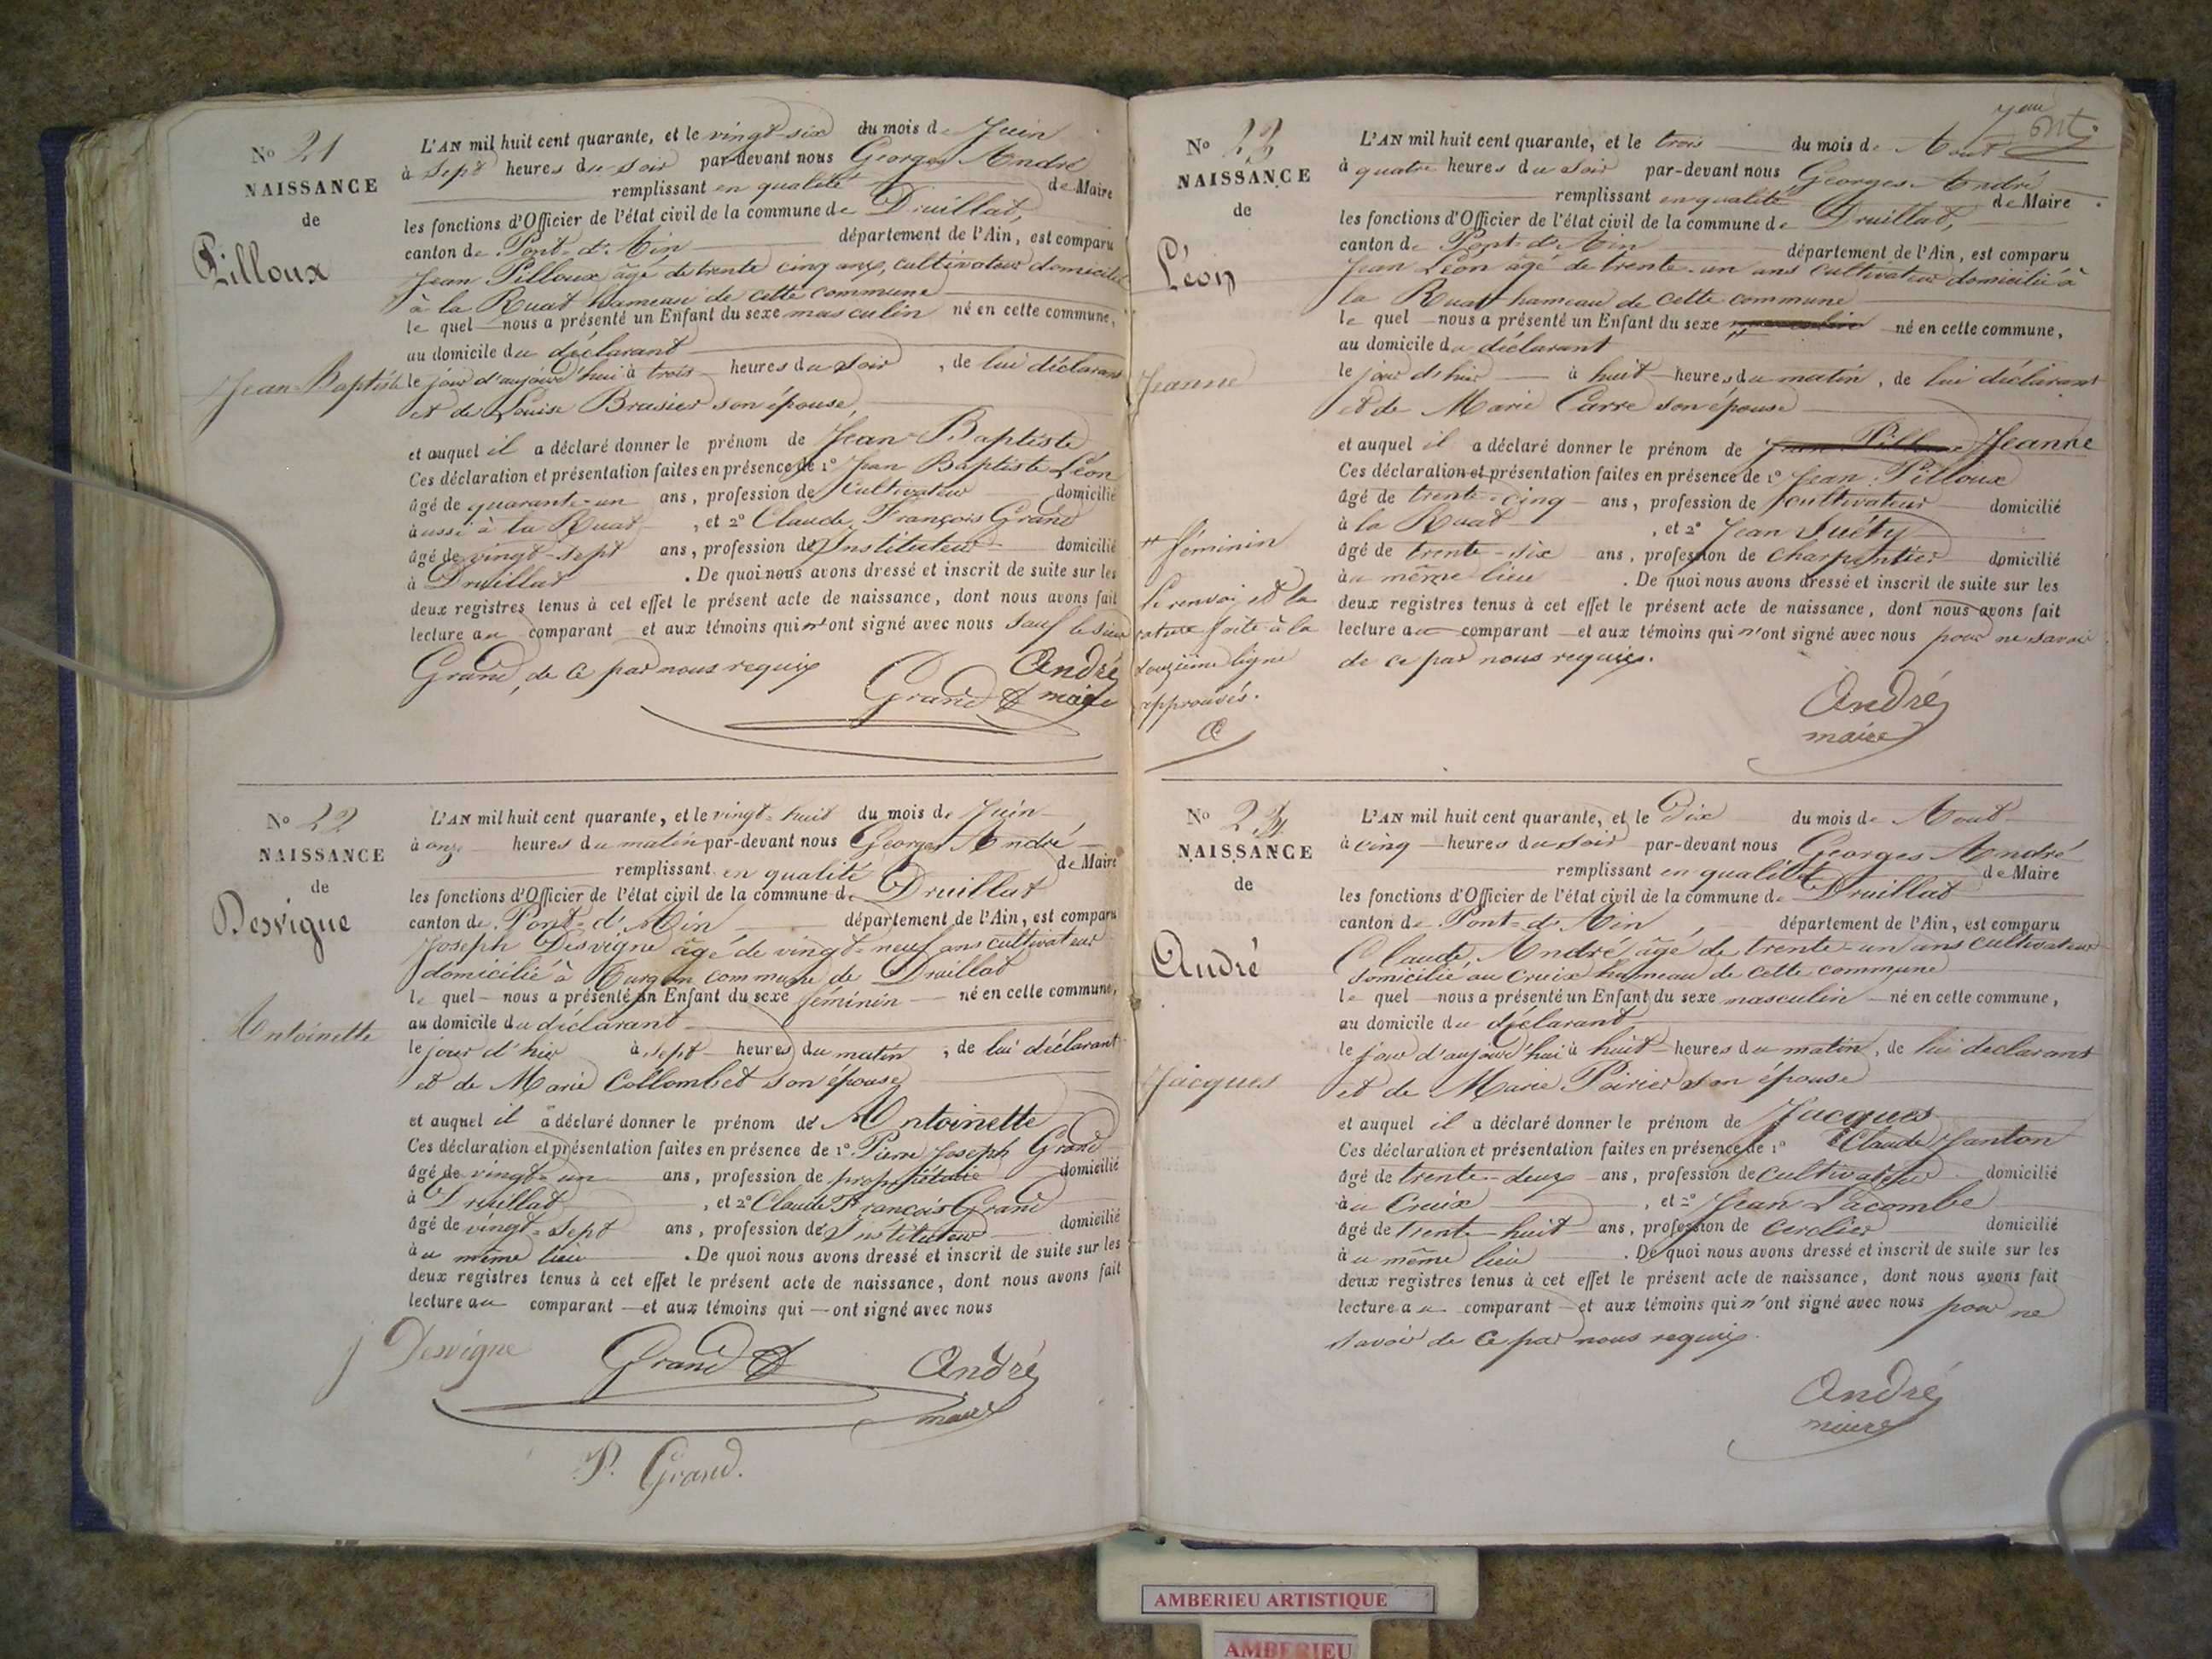 N° 21
NAISSANCE
de
Pilloux
Jean Baptiste
L'AN mil huit cent quarante, et le vingt-six du mois de Juin
à Sept heures du soir par-devant nous Georges André
remplissant en qualité de Maire
les fonctions d'Officier de l'état civil de la commune de Druillat,
canton de Pont-d'Ain département de l'Ain, est comparu
Jean Pilloux âgé de trente cinq ans, cultivateur domicilié
à la Ruat hameau de cette commune
le quel nous a présenté un Enfant du sexe masculin né en cette commune,
au domicile du déclarant
le jour d'aujourd'hui à trois heures du soir, de lui déclarant
et de Louise Brasier son épouse,
et auquel il a déclaré donner le prénom de Jean-Baptiste
Ces déclaration et présentation faites en présence de 1° Jean Baptiste Léon
âgé de quarante-un ans, profession de Cultivateur domicilié
aussi à la Ruat, et 2° Claude François Grand
âgé de vingt-sept ans, profession d'Instituteur domicilié
à Druillat. De quoi nous avons dressé et inscrit de suite sur les
deux registres tenus à cet effet le présent acte de naissance, dont nous avons fait
lecture au comparant et aux témoins qui n'ont signé avec nous sauf le sieur
Grand, de ce par nous requis
André
Grand maire
N° 22
NAISSANCE
de
Desvigne
Antoinette
L'AN mil huit cent quarante, et le vingt-huit du mois de Juin
à onze heures du matin par-devant nous Georges André
remplissant en qualité de Maire
les fonctions d'Officier de l'état civil de la commune de Druillat
canton de Pont-d'Ain département de l'Ain, est comparu
Joseph Desvigne âgé de vingt-neuf ans cultivateur
domicilié à Turgon commune de Druillat
le quel nous a présenté un Enfant du sexe féminin né en cette commune,
au domicile du déclarant
le jour d'hier à sept heures du matin, de lui déclarant
et de Marie Collombet son épouse
et auquel il a déclaré donner le prénom de Antoinette
Ces déclaration et présentation faites en présence de 1° Pierre Joseph Grand
âgé de vingt-un ans, profession de propriétaire domicilié
à Druillat, et 2° Claude François Grand
âgé de vingt-sept ans, profession d'Instituteur domicilié
au même lieu. De quoi nous avons dressé et inscrit de suite sur les
deux registres tenus à cet effet le présent acte de naissance, dont nous avons fait
lecture au comparant et aux témoins qui ont signé avec nous
J Desvigne Grand André
maire
P. Grand.
N° 23
NAISSANCE
de
Léon
Jeanne
féminin
le renvoi et la
rature faite à la
douzième ligne
approuvés.
L'AN mil huit cent quarante, et le trois du mois de Aout
à quatre heures du soir par-devant nous Georges André
remplissant en qualité de Maire
les fonctions d'Officier de l'état civil de la commune de Druillat,
canton de Pont-d'Ain département de l'Ain, est comparu
Jean Léon âgé de trente-un ans cultivateur domicilié à
la Ruat hameau de cette commune
le quel nous a présenté un Enfant du sexe né en cette commune,
au domicile du déclarant
le jour d'hier à huit heures du matin, de lui déclarant
et de Marie Carre son épouse
et auquel il a déclaré donner le prénom de Jeanne
Ces déclaration et présentation faites en présence de 1° Jean Pilloux
âgé de trente-cinq ans, profession de cultivateur domicilié
à la Ruat, et 2° Jean Suéty
âgé de trente-six ans, profession de charpentier domicilié
au même lieu. De quoi nous avons dressé et inscrit de suite sur les
deux registres tenus à cet effet le présent acte de naissance, dont nous avons fait
lecture au comparant et aux témoins qui n'ont signé avec nous pour ne savoir
de ce par nous requis.
André
maire
N° 24
NAISSANCE
de
André
Jacques
L'AN mil huit cent quarante, et le Dix du mois de Aout
à cinq heures du soir par-devant nous Georges André
remplissant en qualité de Maire
les fonctions d'Officier de l'état civil de la commune de Druillat
canton de Pont-d'Ain, département de l'Ain, est comparu
Claude André, âgé de trente-un ans cultivateur
domicilié au Cruix hameau de cette commune
le quel nous a présenté un Enfant du sexe masculin né en cette commune,
au domicile du déclarant
le jour d'aujourd'hui à huit heures du matin, de lui déclarant
et de Marie Poirier son épouse
et auquel il a déclaré donner le prénom de Jacques
Ces déclaration et présentation faites en présence de 1° Claude Janton
âgé de trente-deux ans, profession de Cultivateur domicilié
au Cruix, et 2° Jean Lacombe
âgé de trente huit ans, profession de cerclier domicilié
au même lieu. De quoi nous avons dressé et inscrit de suite sur les
deux registres tenus à cet effet le présent acte de naissance, dont nous avons fait
lecture au comparant et aux témoins qui n'ont signé avec nous pour ne
savoir de ce par nous requis.
André
maire
AMBERIEU ARTISTIQUE
AMBERIEU